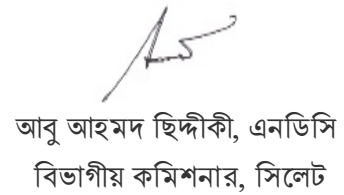 আবু আহমদ ছিদ্দীকী, এনডিসি
বিভাগীয় কমিশনার, সিলেট